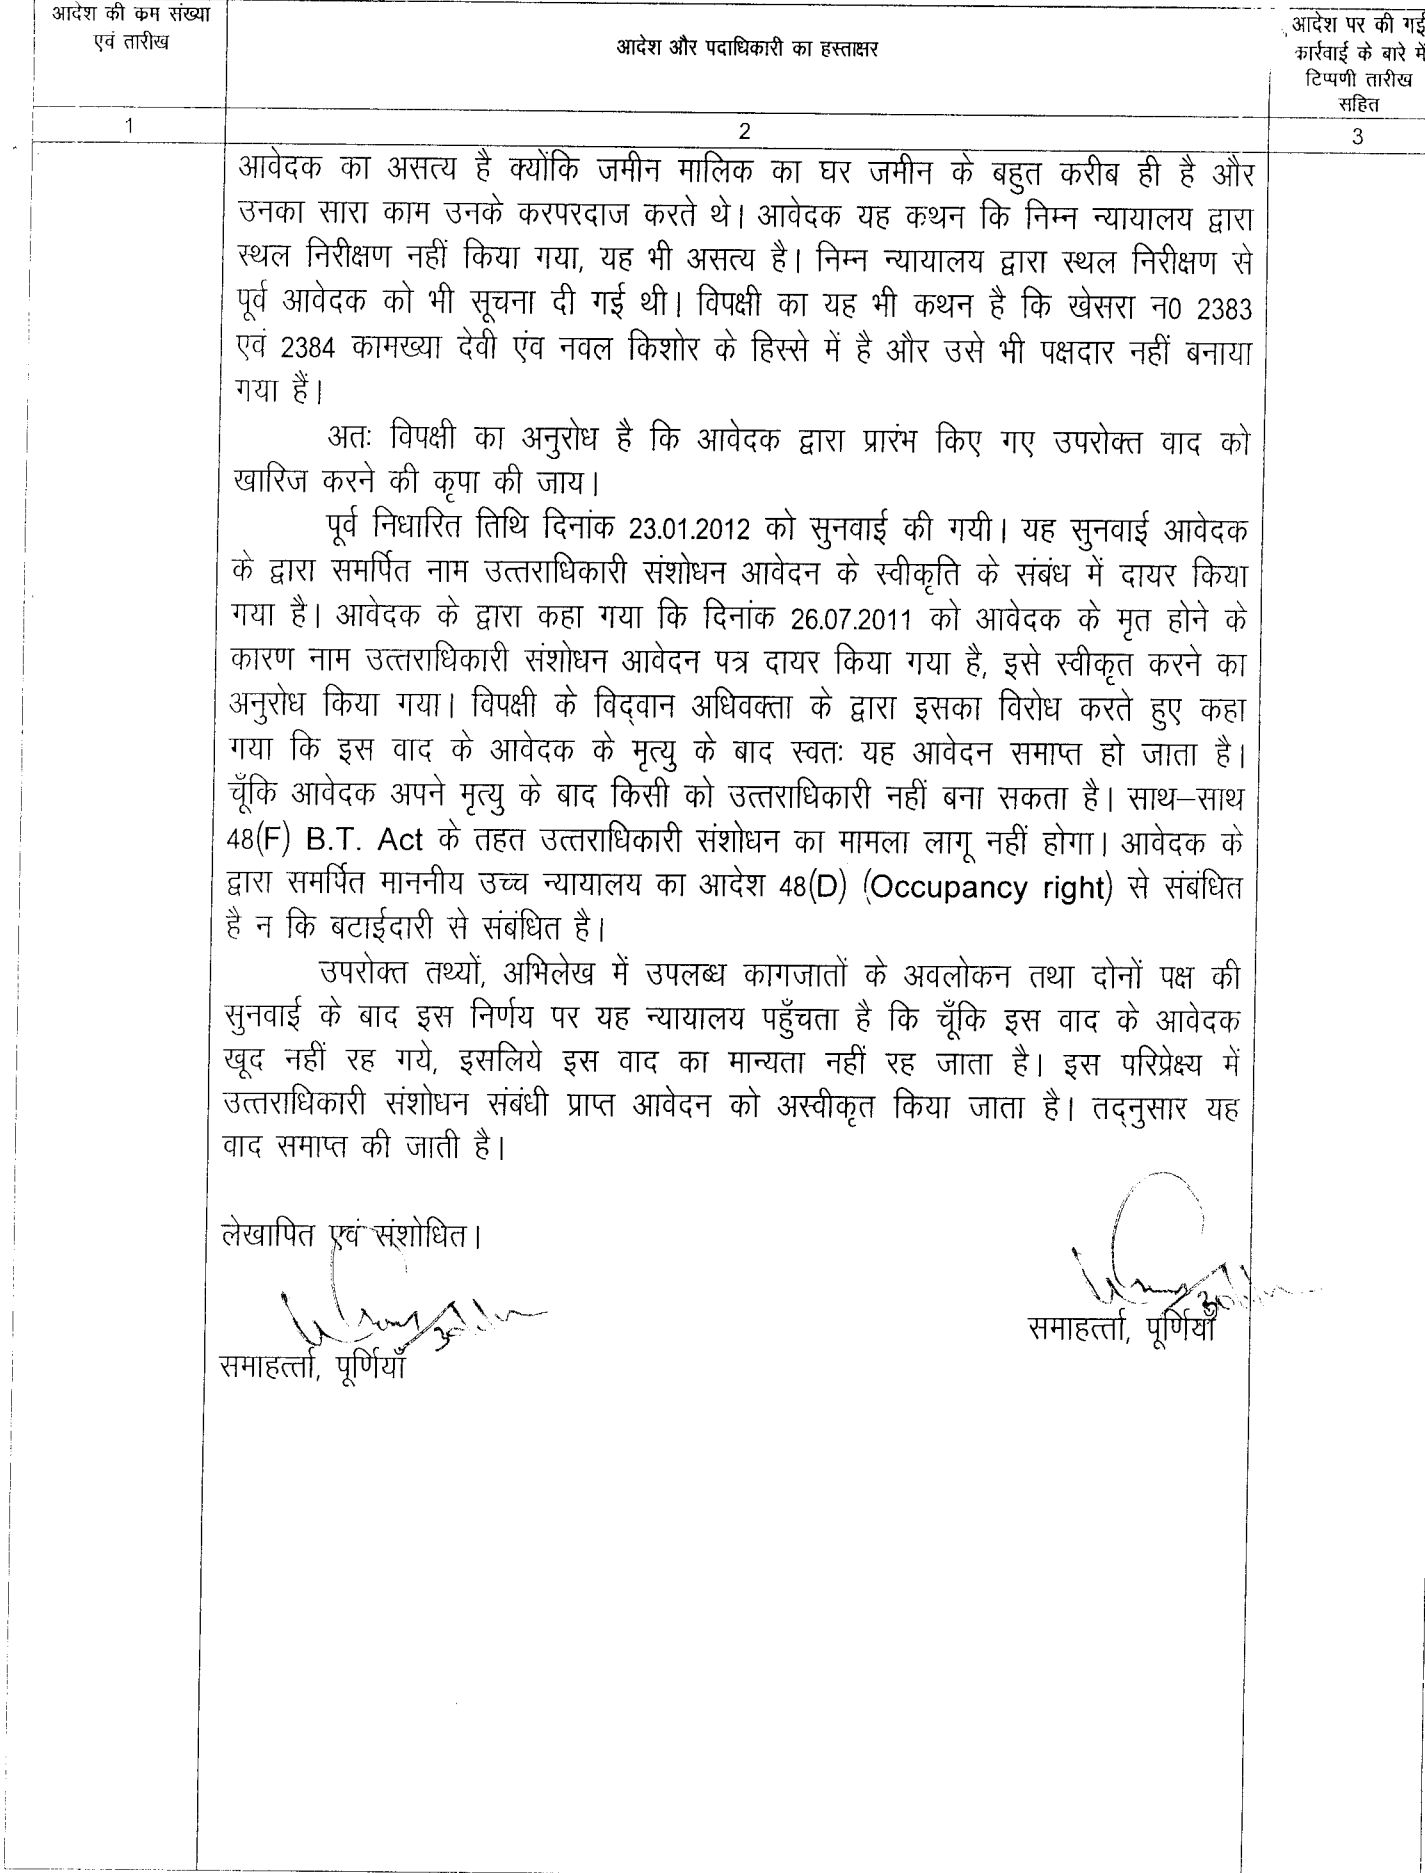 आदेश की कम संख्या
एवं तारीख
आदेश और पदाधिकारी का हस्ताक्षर
आदेश पर की गई
कार्रवाई के बारे में
टिप्पणी तारीख
सहित
1
2
3
आवेदक का असत्य है क्योंकि जमीन मालिक का घर जमीन के बहुत करीब ही है और
उनका सारा काम उनके करपरदाज करते थे। आवेदक यह कथन कि निम्न न्यायालय द्वारा
स्थल निरीक्षण नहीं किया गया, यह भी असत्य है। निम्न न्यायालय द्वारा स्थल निरीक्षण से
पूर्व आवेदक को भी सूचना दी गई थी। विपक्षी का यह भी कथन है कि खेसरा न0 2383
एवं 2384 कामख्या देवी एंव नवल किशोर के हिस्से में है और उसे भी पक्षदार नहीं बनाया
गया हैं।
अतः विपक्षी का अनुरोध है कि आवेदक द्वारा प्रारंभ किए गए उपरोक्त वाद को
खारिज करने की कृपा की जाय।
पूर्व निधारित तिथि दिनांक 23.01.2012 को सुनवाई की गयी। यह सुनवाई आवेदक
के द्वारा समर्पित नाम उत्तराधिकारी संशोधन आवेदन के स्वीकृति के संबंध में दायर किया
गया है। आवेदक के द्वारा कहा गया कि दिनांक 26.07.2011 को आवेदक के मृत होने के
कारण नाम उत्तराधिकारी संशोधन आवेदन पत्र दायर किया गया है, इसे स्वीकृत करने का
अनुरोध किया गया। विपक्षी के विद्वान अधिवक्ता के द्वारा इसका विरोध करते हुए कहा
गया कि इस वाद के आवेदक के मृत्यु के बाद स्वतः यह आवेदन समाप्त हो जाता है।
चूँकि आवेदक अपने मृत्यु के बाद किसी को उत्तराधिकारी नहीं बना सकता है। साथ–साथ
48(F) B.T. Act के तहत उत्तराधिकारी संशोधन का मामला लागू नहीं होगा। आवेदक के
द्वारा समर्पित माननीय उच्च न्यायालय का आदेश 48(D) (Occupancy right) से संबंधित
है न कि बटाईदारी से संबंधित है।
उपरोक्त तथ्यों, अभिलेख में उपलब्ध कागजातों के अवलोकन तथा दोनों पक्ष की
सुनवाई के बाद इस निर्णय पर यह न्यायालय पहुँचता है कि चूँकि इस वाद के आवेदक
खूद नहीं रह गये, इसलिये इस वाद का मान्यता नहीं रह जाता है। इस परिप्रेक्ष्य में
उत्तराधिकारी संशोधन संबंधी प्राप्त आवेदन को अस्वीकृत किया जाता है। तद्नुसार यह
वाद समाप्त की जाती है।
लेखापित एवं संशोधित।
समाहर्त्ता, पूर्णियाँ
समाहर्त्ता, पूर्णियाँ